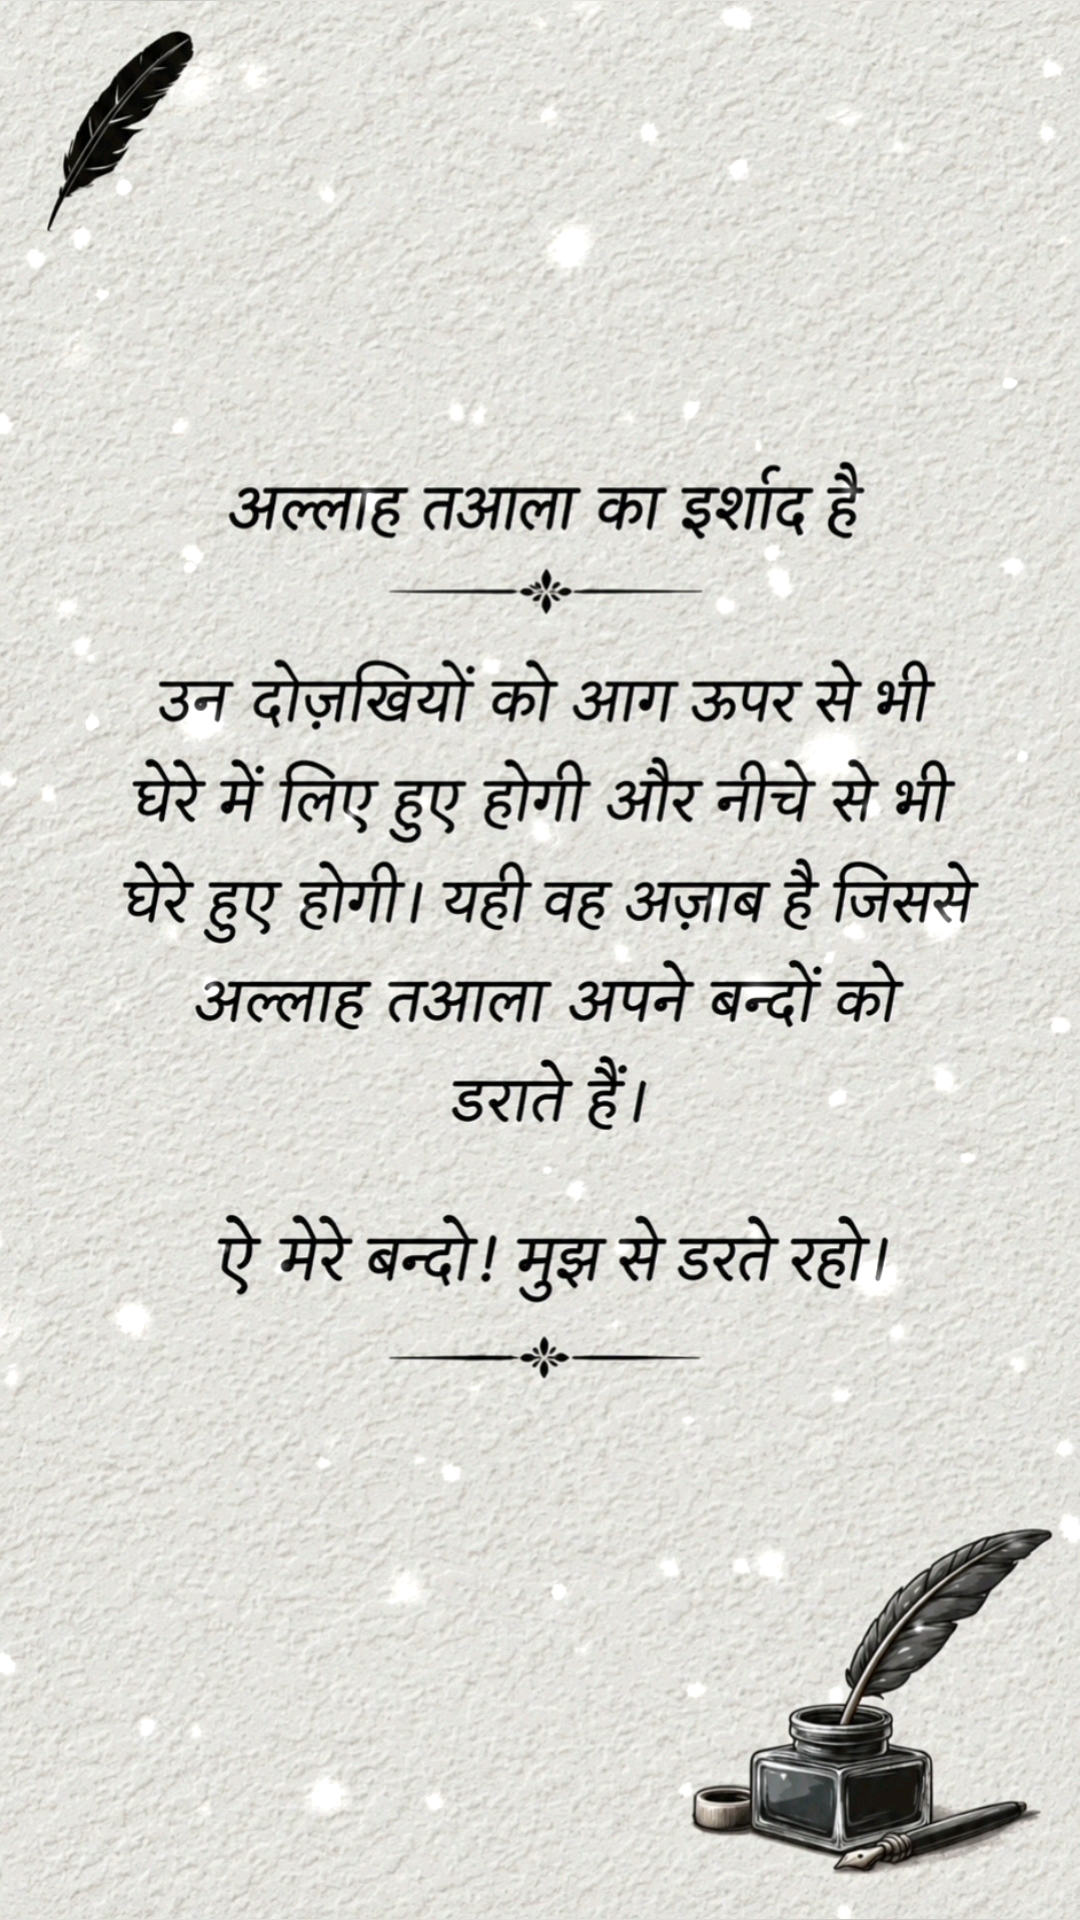 अल्लाह तआला का इर्शाद है
उन दोज़खियों को आग ऊपर से भी
घेरे में लिए हुए होगी और नीचे से भी
घेरे हुए होगी। यही वह अज़ाब है जिससे
अल्लाह तआला अपने बन्दों को
डराते हैं।
ऐ मेरे बन्दो! मुझ से डरते रहो।